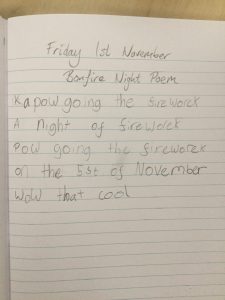 Friday 1st November
Bonfire Night Poem
Kapow going the firework
A night of firework
Pow going the firework
on the 5st of November
Wow that cool